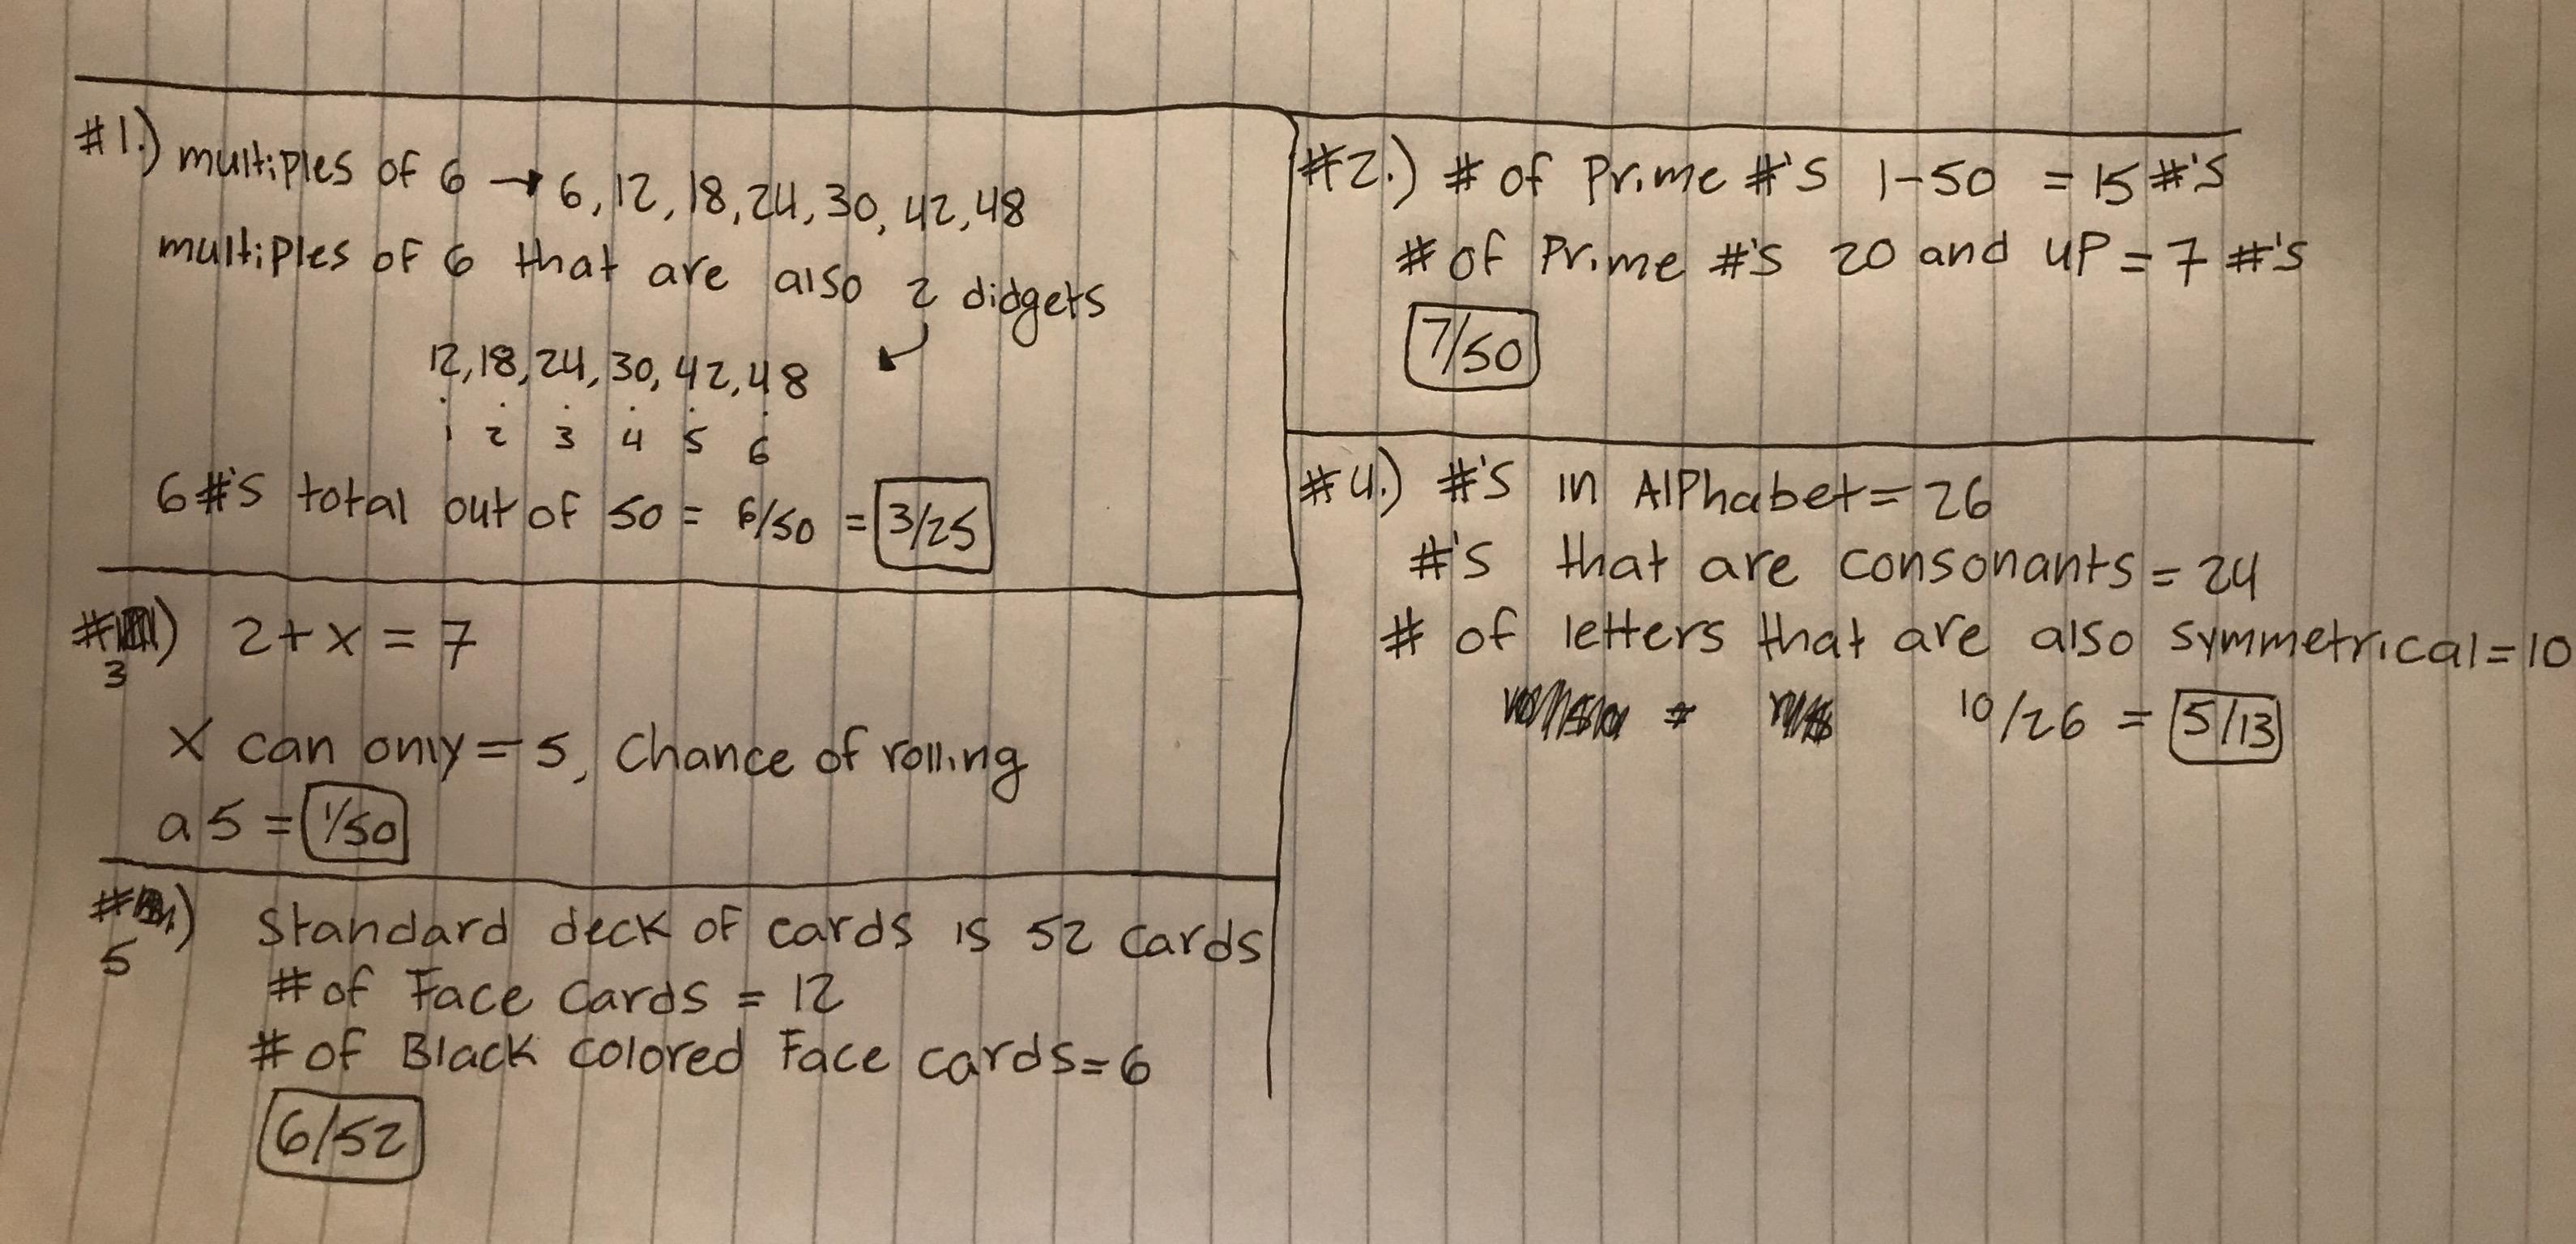 #1.) multiples of 6 → 6, 12, 18, 24, 30, 42, 48
multiples of 6 that are also 2 didgets
12, 18, 24, 30, 42, 48
1 2 3 4 5 6
6 #'s total out of 50 = 6/50 = 3/25
#2.) # of Prime #'s 1-50 = 15 #'s
# of Prime #'s 20 and up = 7 #'s
7/50
# 3) 2 + x = 7
X can only = 5, Chance of rolling
a 5 = 1/50
#4.) #'s in Alphabet = 26
#'s that are consonants = 24
# of letters that are also symmetrical = 10
10/26 = 5/13
# 5) Standard deck of cards is 52 cards
# of Face Cards = 12
# of Black colored Face cards = 6
6/52